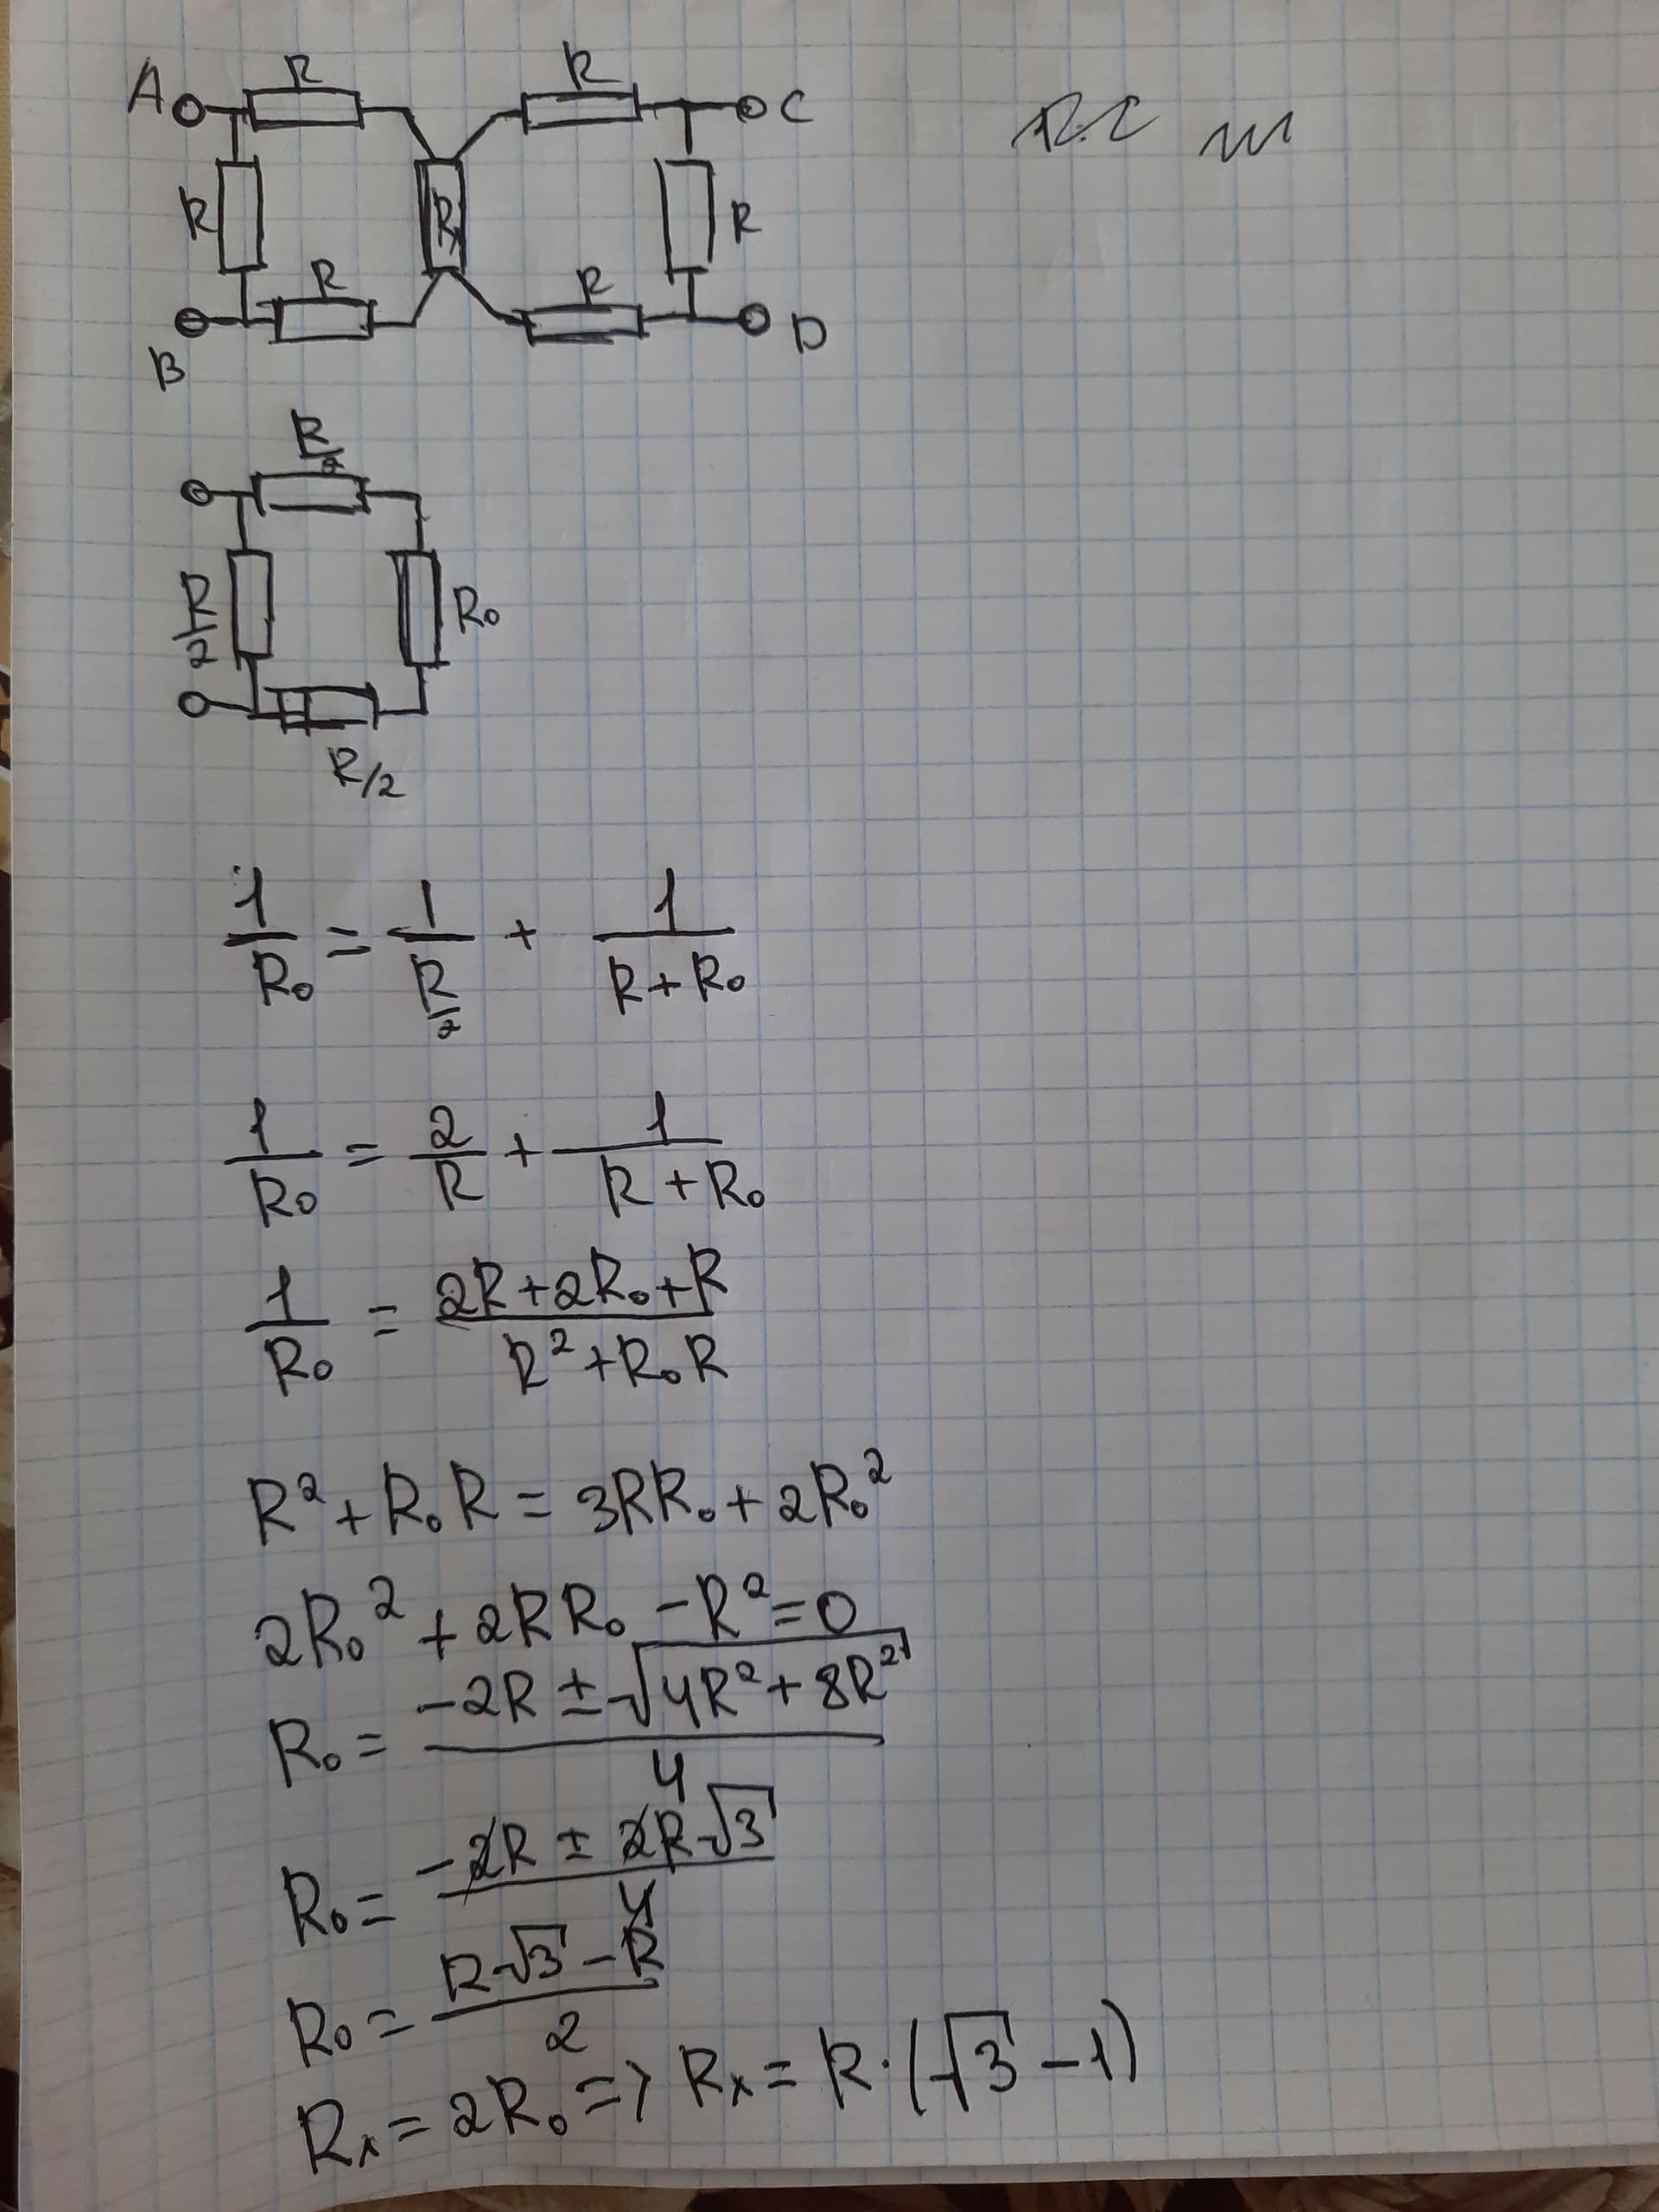 A R R C
R Rx R
B R R D
R/2
R/2 R₀
R/2
1/R₀ = 1/(R/2) + 1/(R+R₀)
1/R₀ = 2/R + 1/(R+R₀)
1/R₀ = (2R+2R₀+R)/(R²+R₀R)
R²+R₀R = 3RR₀+2R₀²
2R₀²+2RR₀-R²=0
R₀ = (-2R±√(4R²+8R²))/4
R₀ = (-2R±2R√3)/4
R₀ = (R√3-R)/2
Rx = 2R₀ => Rx = R·(√3-1)